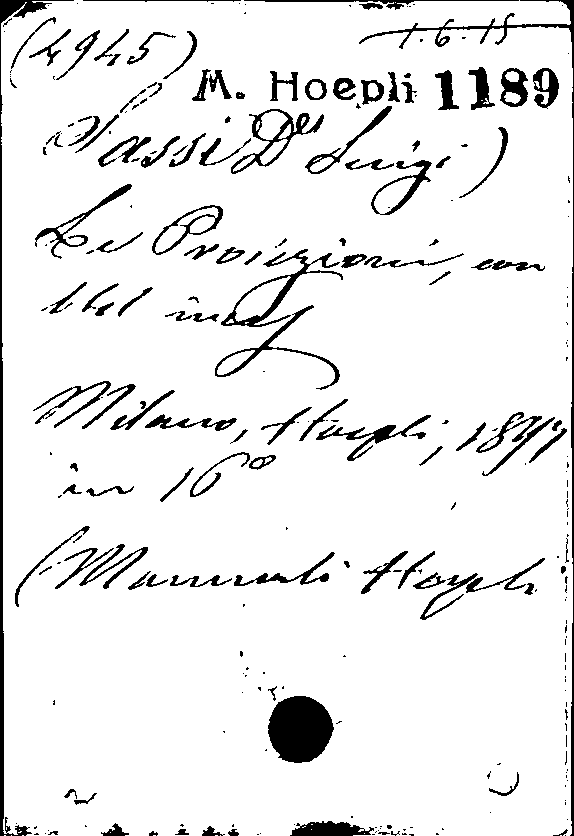 (4945)
1.6.15
M. Hoepli 1189
Sassi Dr Luigi)
Le Proiezioni, con
141 incis
Milano, Hoepli, 1897
in 16°
(Manuali Hoepli